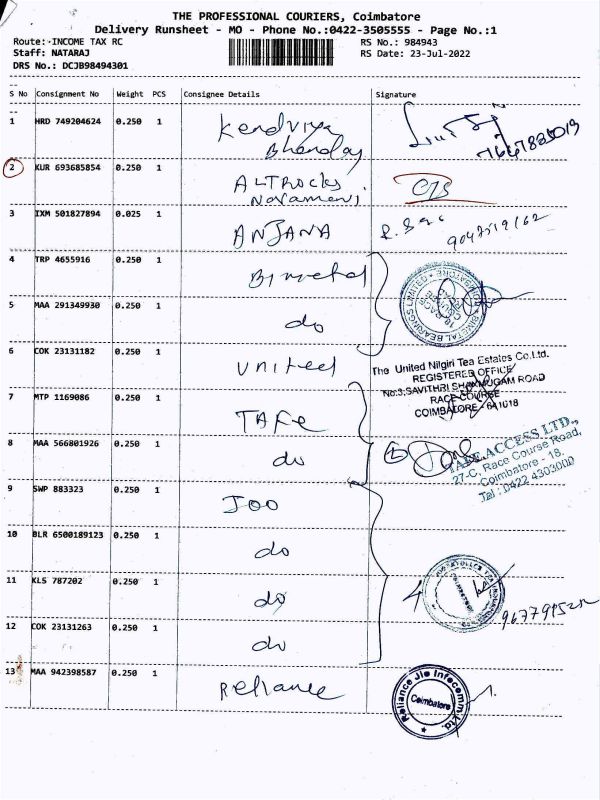 THE PROFESSIONAL COURIERS, Coimbatore
Delivery Runsheet - MO - Phone No.:0422-3505555 - Page No.:1
Route: INCOME TAX RC RS No.: 984943
Staff: NATARAJ RS Date: 23-Jul-2022
DRS No.: DCJB98494301
S No Consignment No Weight PCS Consignee Details Signature
1 HRD 749204624 0.250 1 Kendriya
Bhandar
2 KUR 693685854 0.250 1 ALTROCKS
3 IXM 501827894 0.025 1 ANJANA
4 TRP 4655916 0.250 1 Bimetal
BIMETAL BEARINGS LIMITED
5 MAA 291349930 0.250 1 do
6 COK 23131182 0.250 1 United
The United Nilgiri Tea Estates Co.Ltd.
REGISTERED OFFICE
No:3,SAVITHRI SHANMUGAM ROAD
RACE COURSE
COIMBATORE - 641018
7 MTP 1169086 0.250 1 TAFE
8 MAA 566801926 0.250 1 do
TAFE ACCESS LTD.,
27-C, Race Course Road,
Coimbatore - 18.
Tel : 0422 4303000
9 SWP 883323 0.250 1 Joo
10 BLR 6500189123 0.250 1 do
11 KLS 787202 0.250 1 do
4
12 COK 23131263 0.250 1 do
13 MAA 942398587 0.250 1 Reliance
Reliance Jio Infocomm Ltd.
Coimbatore
1.